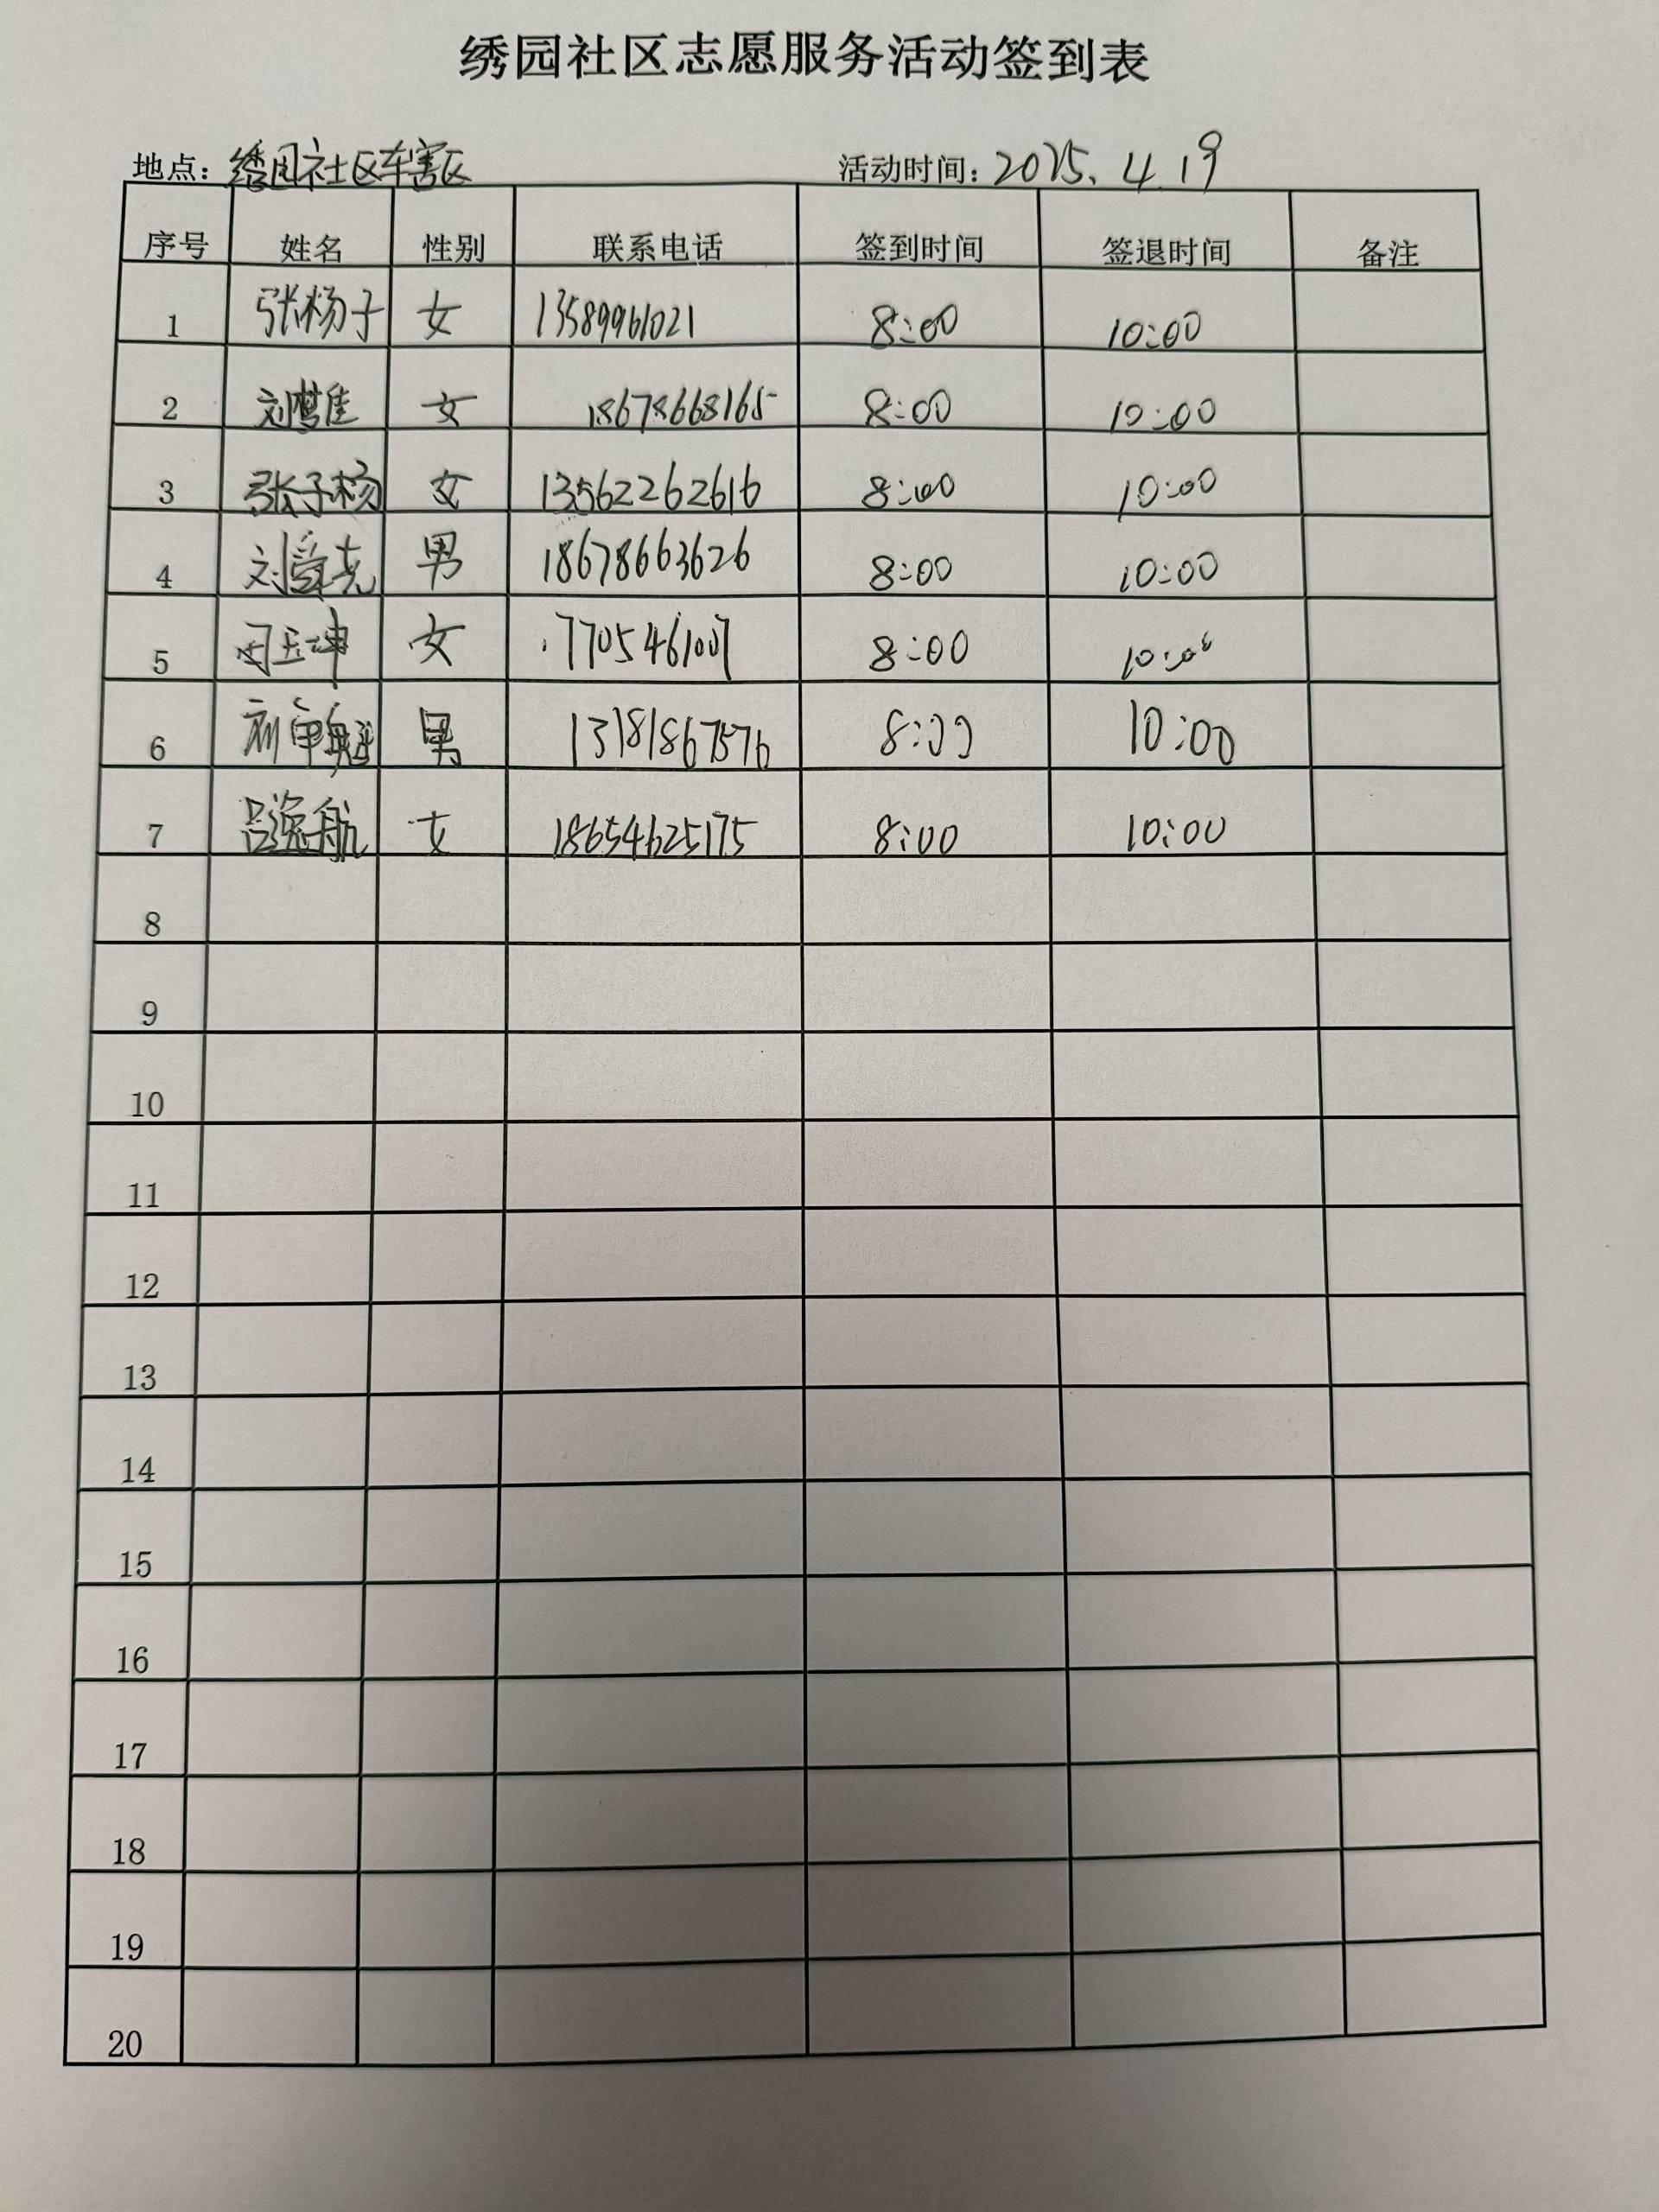 绣园社区志愿服务活动签到表
地点：绣园社区车害区 活动时间：2025.4.19
序号 姓名 性别 联系电话 签到时间 签退时间 备注
1 张杨子 女 13589961021 8:00 10:00
2 刘梦佳 女 18678668165 8:00 10:00
3 张子杨 女 13562262616 8:00 10:00
4 刘 男 18678663626 8:00 10:00
5 玉坤 女 17705461007 8:00 10:00
6 男 13181867576 8:00 10:00
7 吕逸航 女 18654625175 8:00 10:00
8
9
10
11
12
13
14
15
16
17
18
19
20